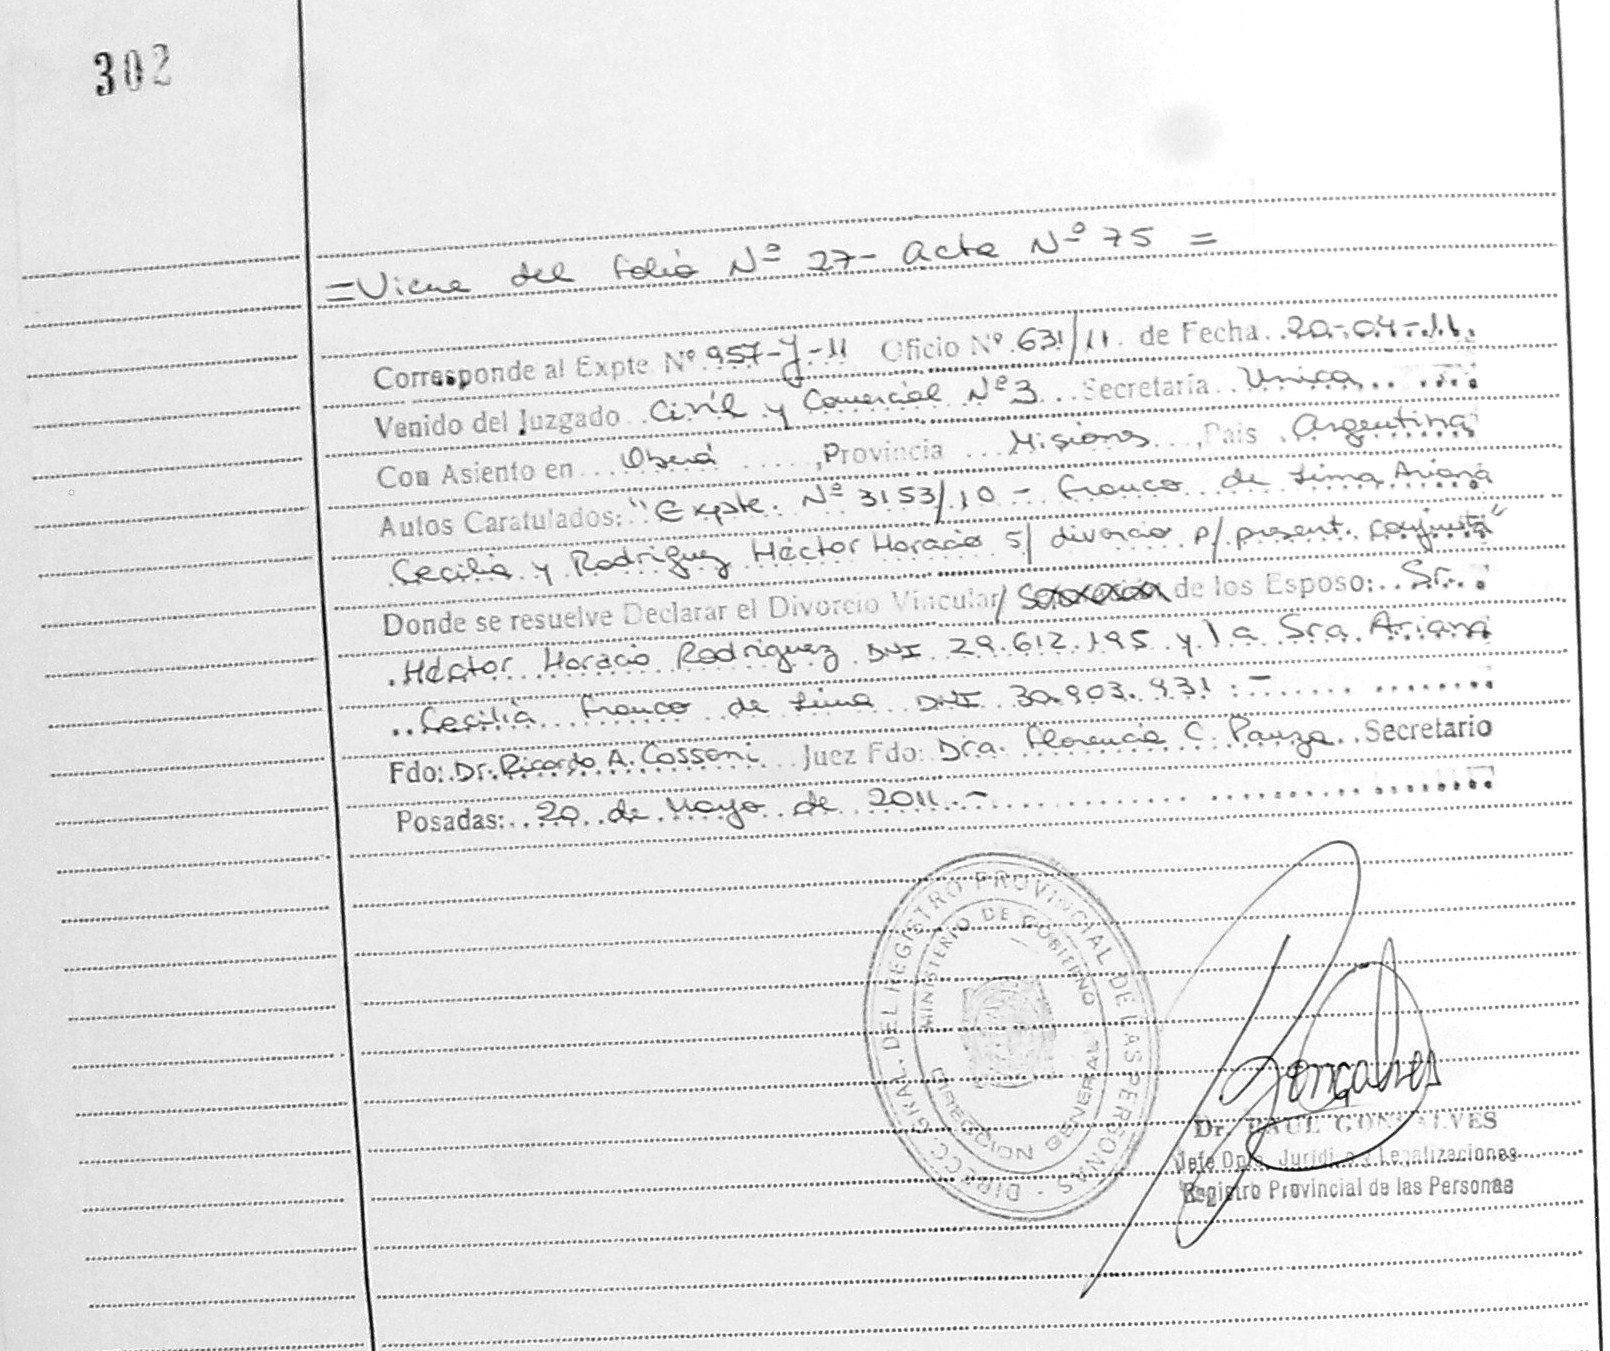 302
=Viene del folio Nº 27- acta Nº 75 =
Corresponde al Expte Nº 957-Y-11 Oficio Nº 631/11. de Fecha 20-04-11.
Venido del Juzgado Civil y Comercial Nº3 Secretaría Unica
Con Asiento en Oberá, Provincia Misiones, Pais Argentina,
Autos Caratulados: "Expte. Nº 3153/10 - Franco de Lima Ariana
Cecilia y Rodriguez Héctor Horacio s/ divorcio p/ present. conjunta"
Donde se resuelve Declarar el Divorcio Vincular/ de los Esposo: Sr.
Héctor Horacio Rodriguez DNI 29.612.195 y la Sra. Ariana
Cecilia Franco de Lima DNI 30.903.931 :-
Fdo: Dr. Ricardo A. Cassoni Juez Fdo: Dra. Florencia C. Pauza Secretario
Posadas: 20 de Mayo de 2011.-
DIRECC. GRAL. DEL REGISTRO PROVINCIAL DE LAS PERSONAS -
MINISTERIO DE GOBIERNO
DIRECCION GENERAL
Gonçalves
Dr. PAUL GONSALVES
Jefe Dpto. Jurídico y Legalizaciones
Registro Provincial de las Personas